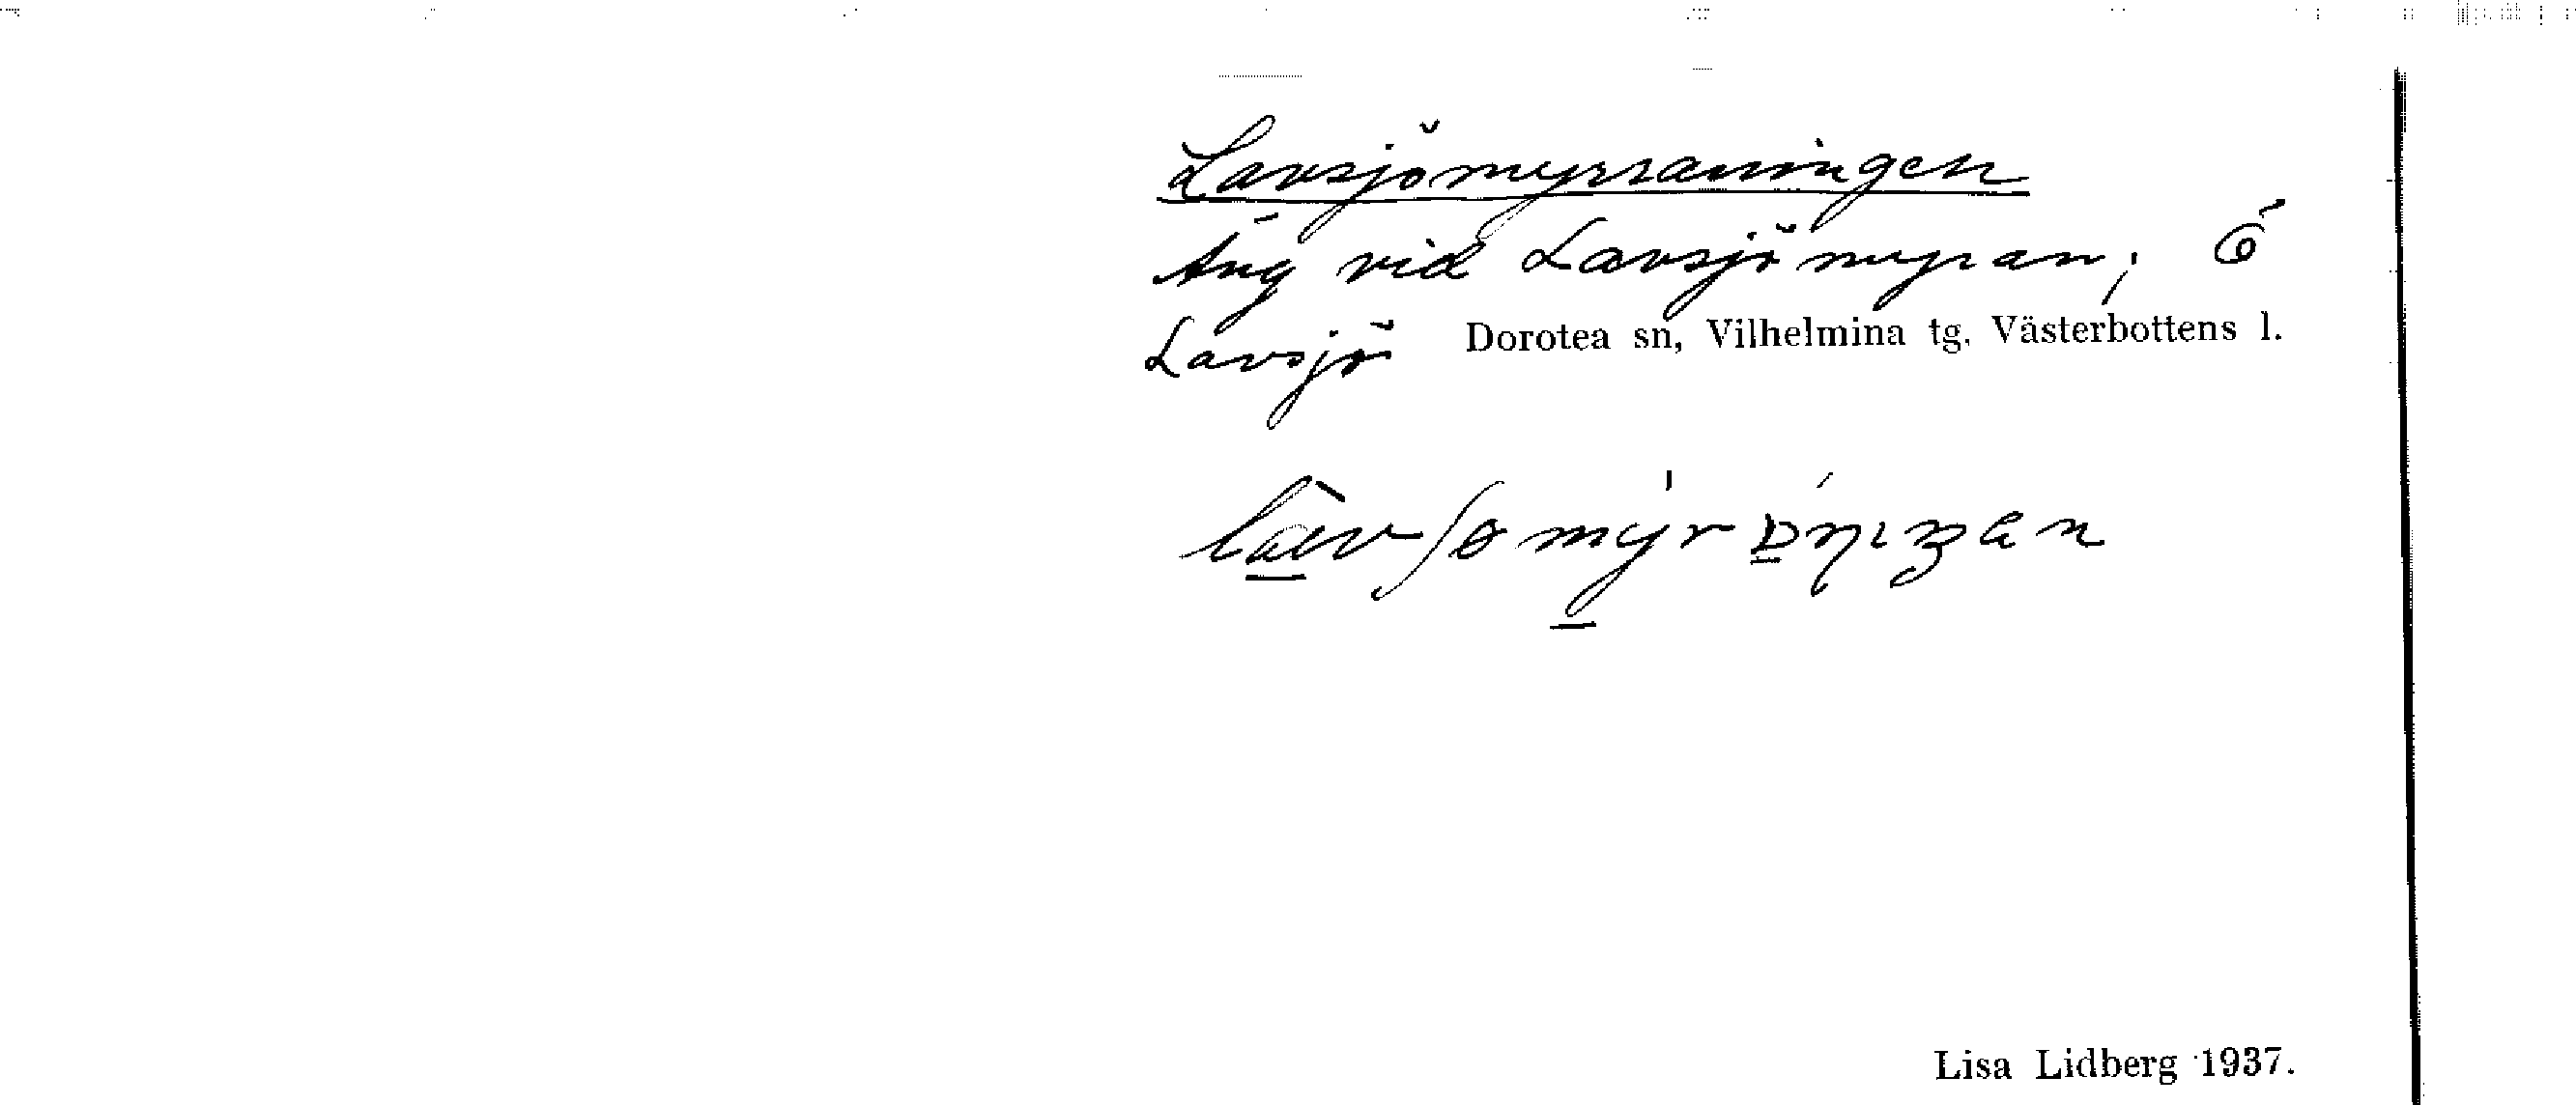 Lavsjömyrraningen
Äng vid Lavsjömyran; Ö
Lavsjö Dorotea sn, Vilhelmina tg. Västerbottens l.
Lisa Lidberg 1937.